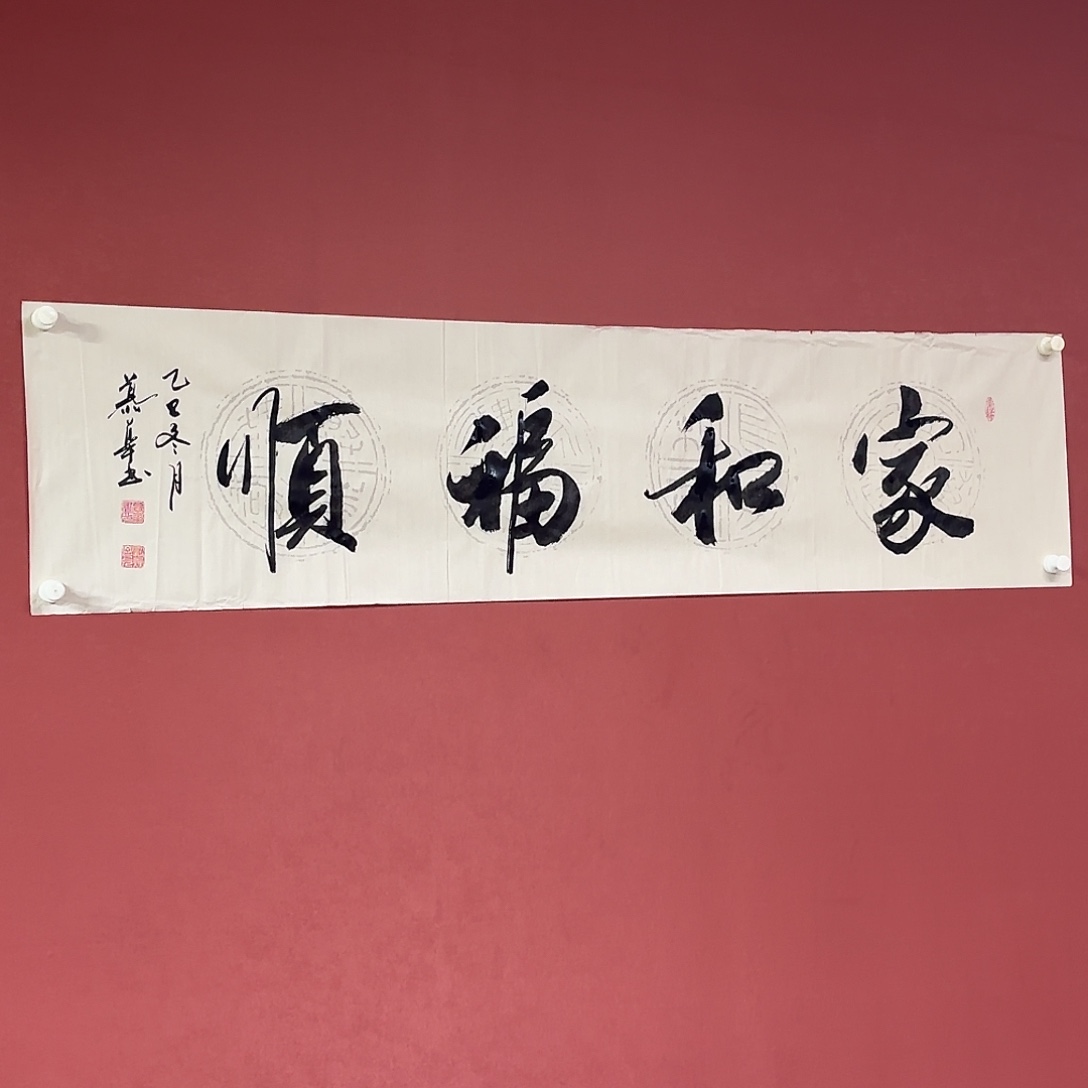 家和福順
乙巳冬月
慕華书